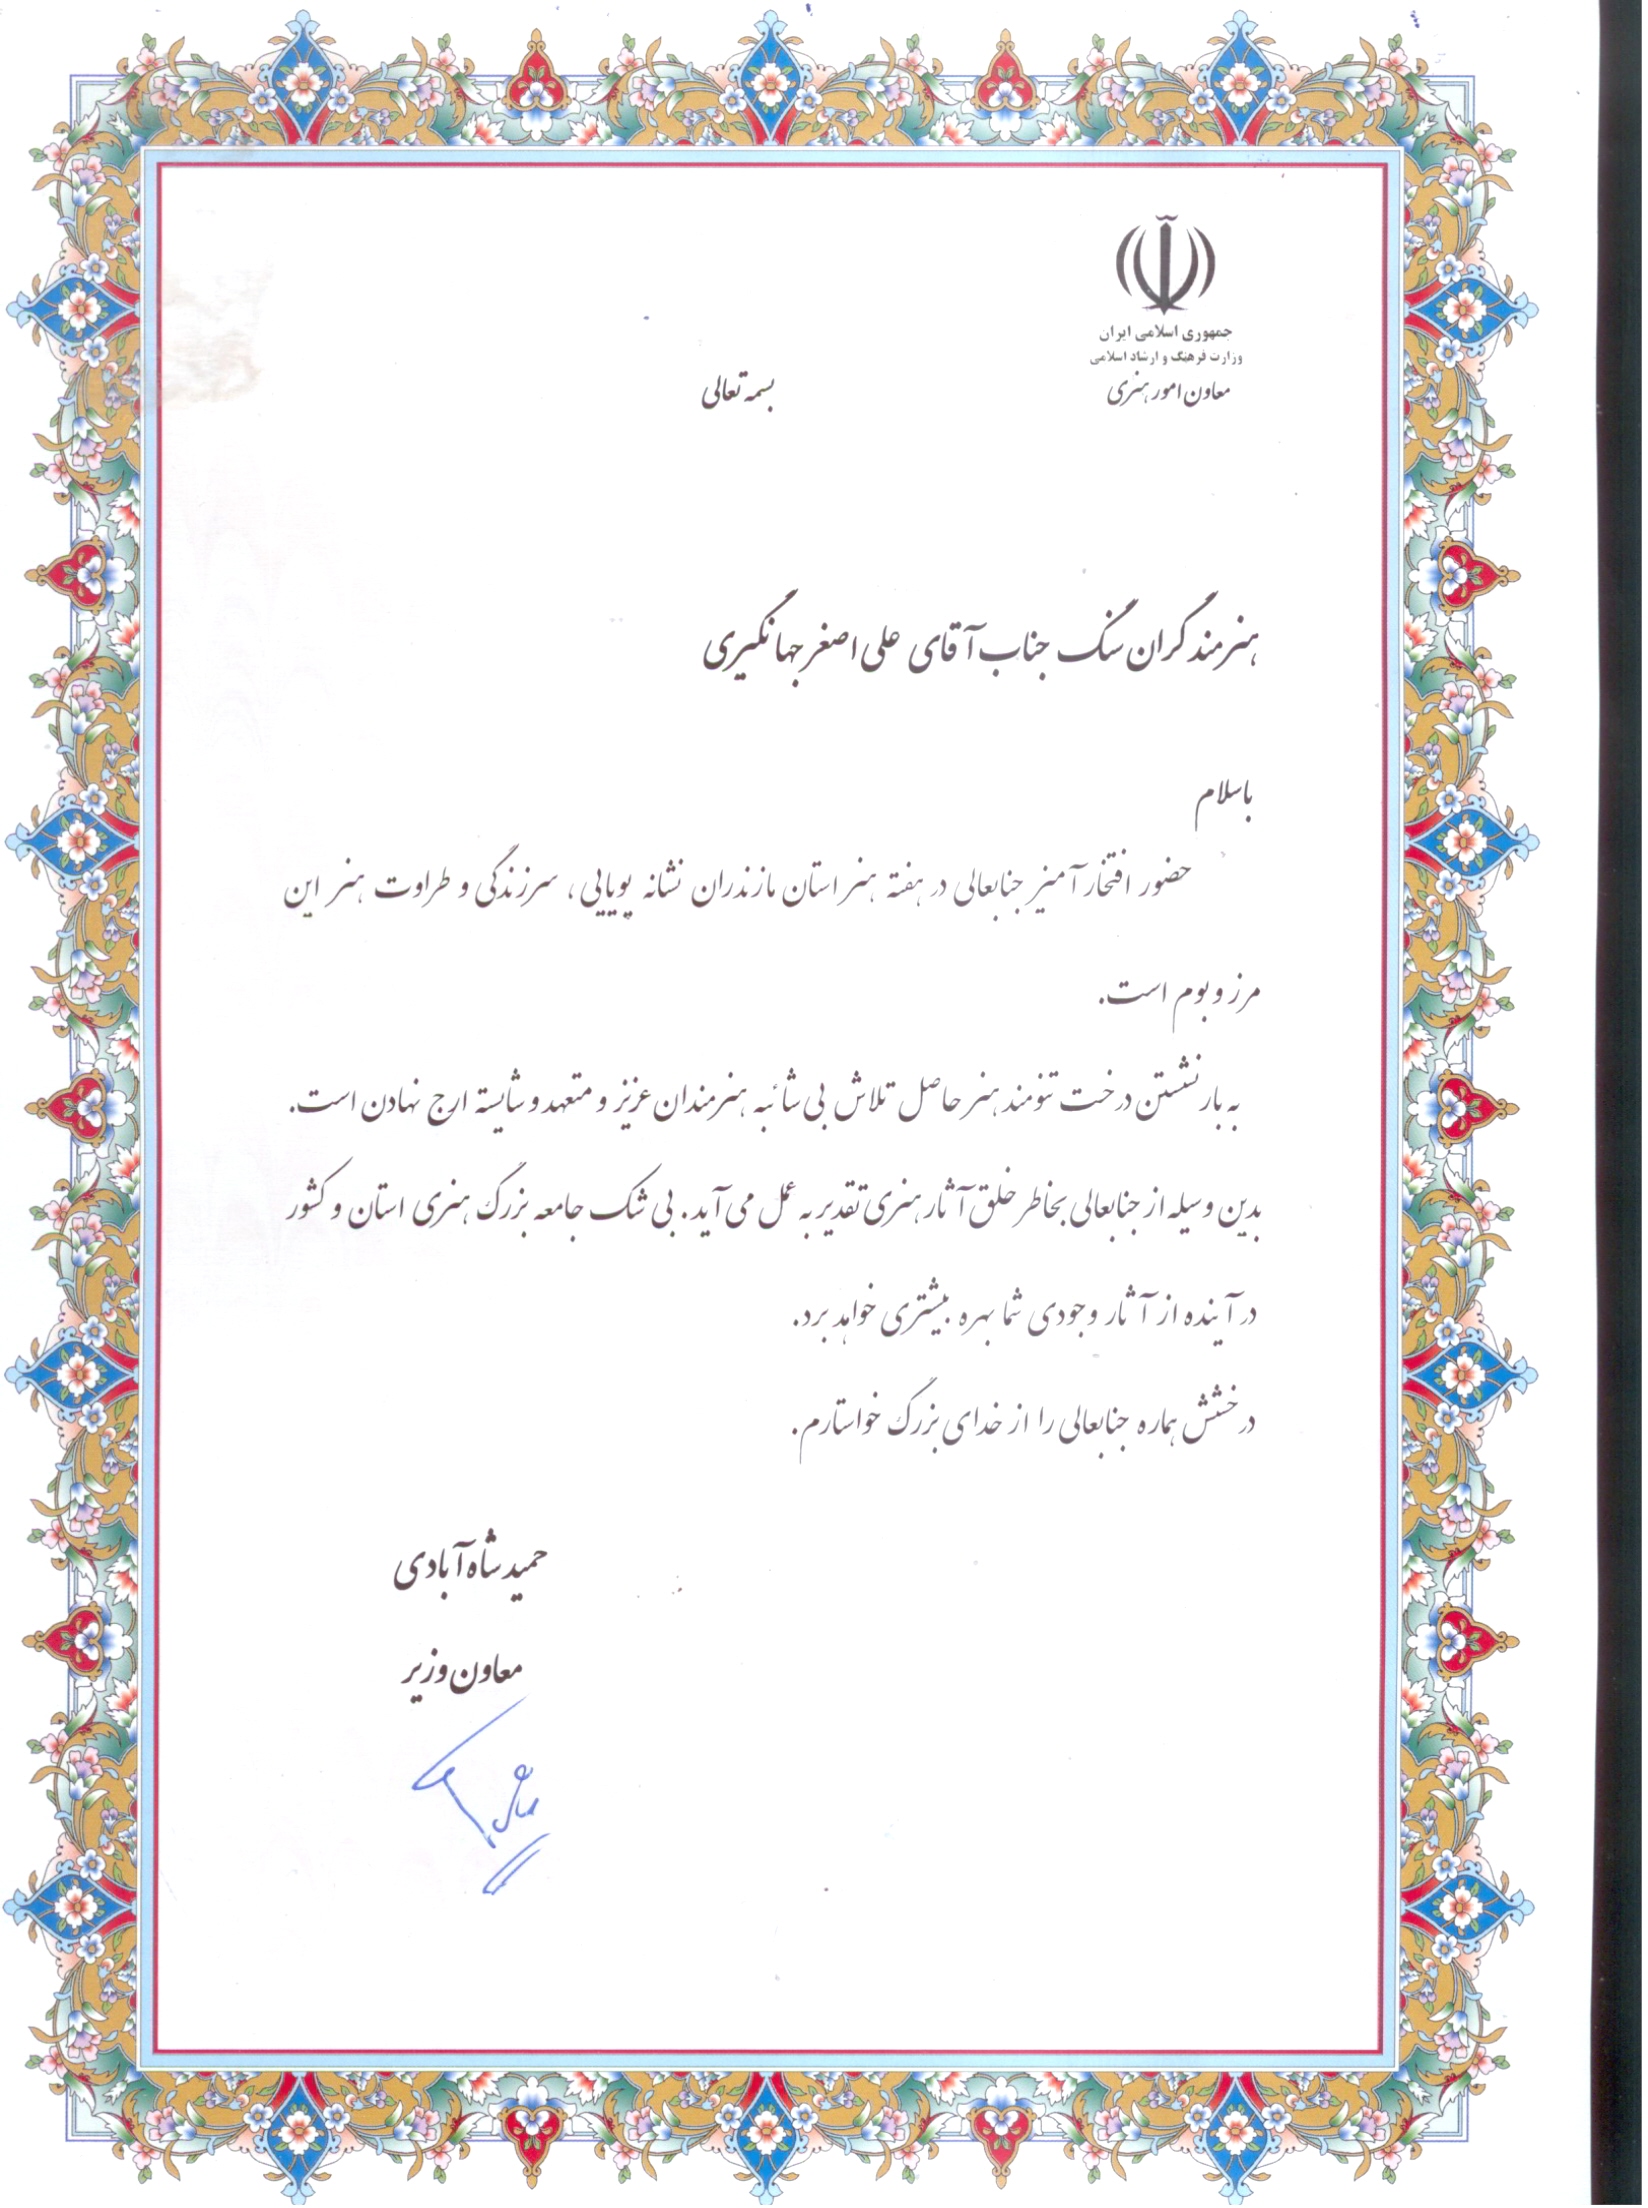 جمهوری اسلامی ایران
وزارت فرهنگ و ارشاد اسلامی
معاون امور هنری
بسمه تعالی
هنرمند گران سنگ جناب آقای علی اصغر جهانگیری
باسلام
حضور افتخار آمیز جنابعالی در هفته هنر استان مازندران نشانه پویایی، سرزندگی و طراوت هنر این
مرز و بوم است.
به بار نشستن درخت تنومند هنر حاصل تلاش بی شائبه هنرمندان عزیز و متعهد و شایسته ارج نهادن است.
بدین وسیله از جنابعالی بخاطر خلق آثار هنری تقدیر به عمل می آید. بی شک جامعه بزرگ هنری استان و کشور
در آینده از آثار وجودی شما بهره بیشتری خواهد برد.
درخشش هماره جنابعالی را از خدای بزرگ خواستارم.
حمید شاه آبادی
معاون وزیر